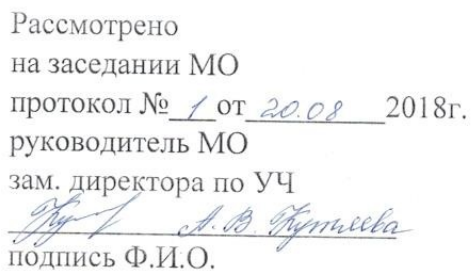 Рассмотрено
на заседании МО
протокол № 1 от 20.08 2018г.
руководитель МО
зам. директора по УЧ
А. В. Кутлева
подпись Ф.И.О.